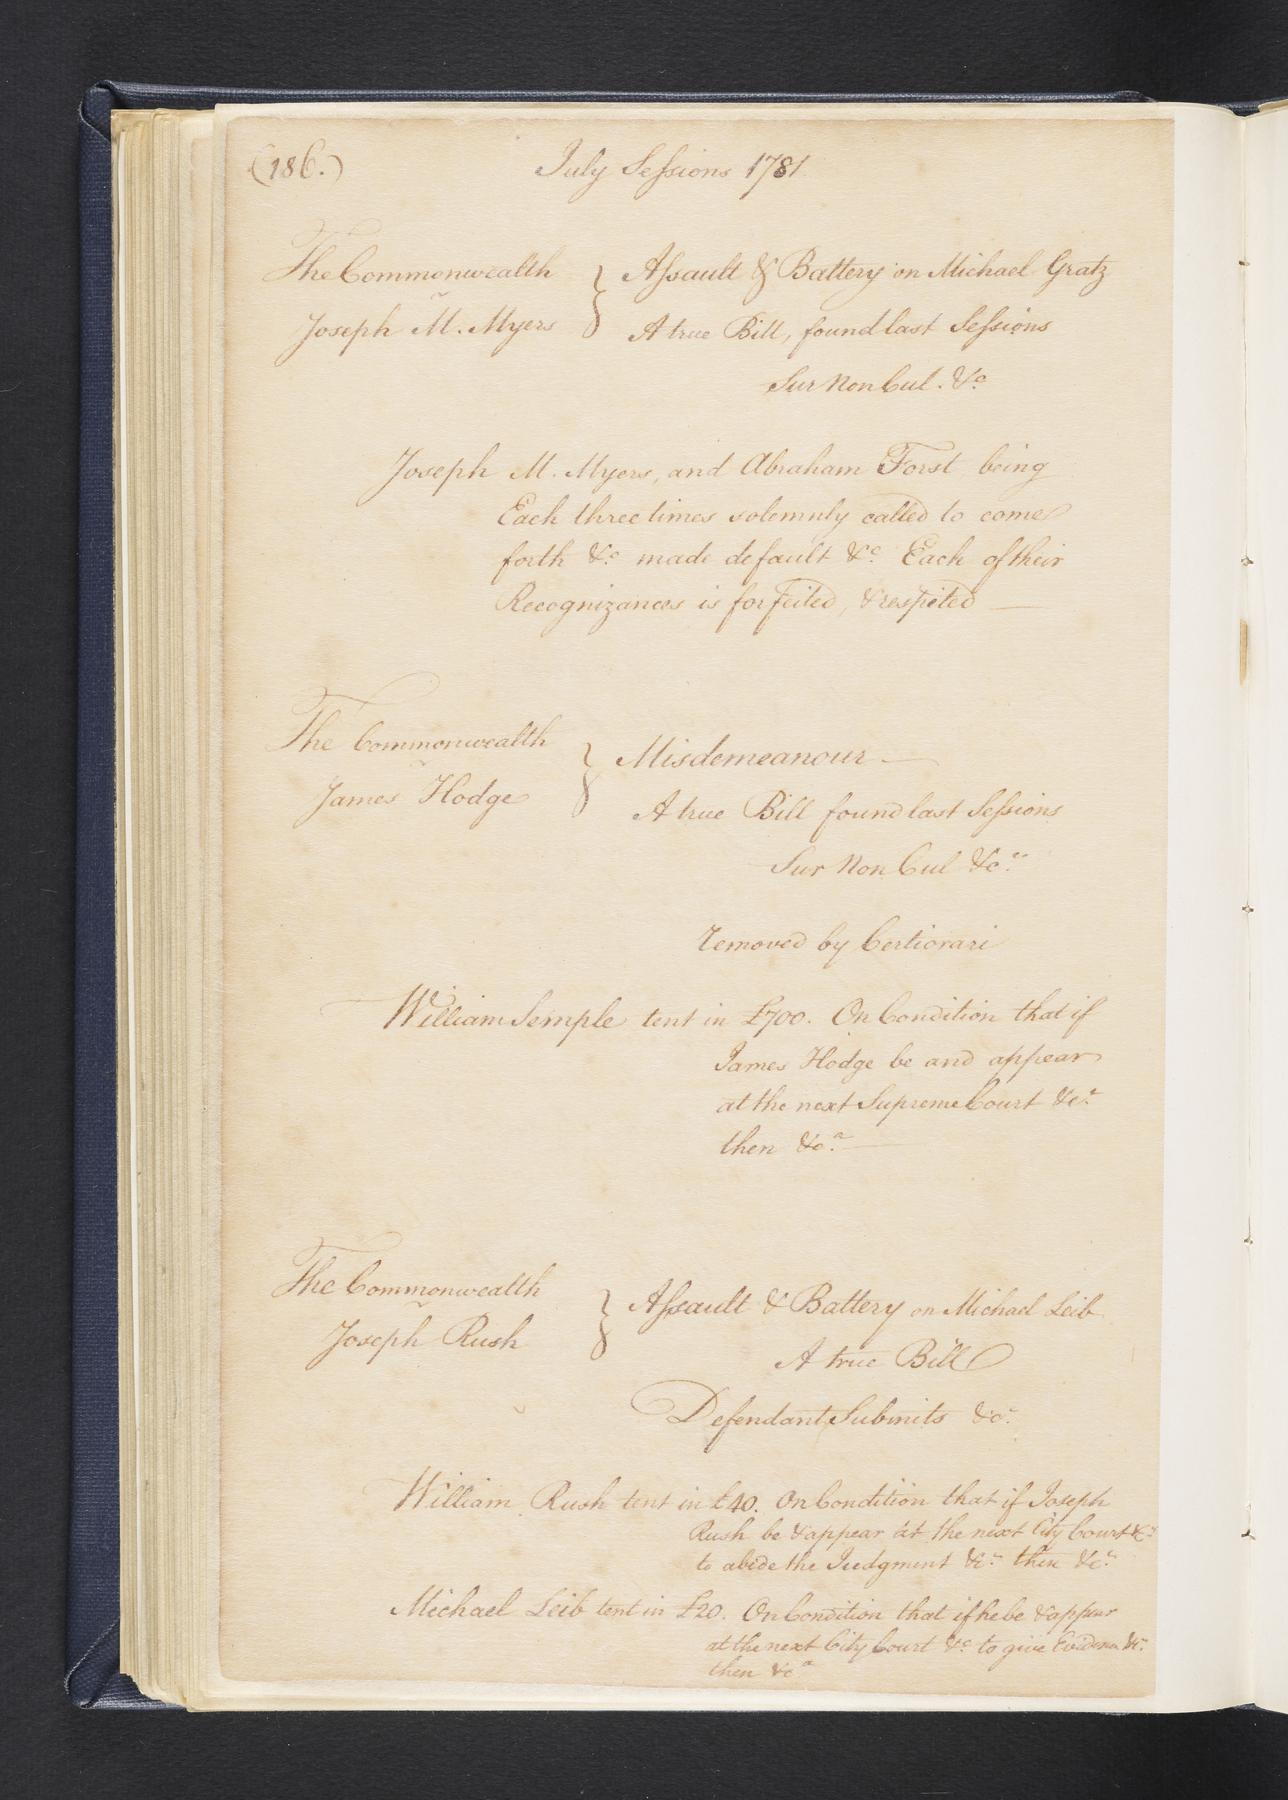 (186.)
July Sessions 1781.
The Commonwealth
~
Joseph M. Myers
Assault & Battery on Michael Gratz
A true Bill, found last Sessions
Sur Non Cul. &c
Joseph M. Myers, and Abraham Forst being
Each three times solemnly called to come
forth &c. made default &c. Each of their
Recognizances is forfeited, & respited —
The Commonwealth
~
James Hodge
Misdemeanour —
A true Bill found last Sessions
Sur Non Cul &ca.
removed by Certiorari
William Semple tent in £700. On Condition that if
James Hodge be and appear
at the next Supreme Court &ca.
then &ca. —
The Commonwealth
~
Joseph Rush
Assault & Battery on Michael Leib
A true Bill
Defendant Submits &c.
William Rush tent in £40. On Condition that if Joseph
Rush be & appear at the next City Court &c.
to abide the Judgment &c. then &c.
Michael Leib tent in £20. On Condition that if he be & appear
at the next City Court &c. to give Evidence &c.
then &ca